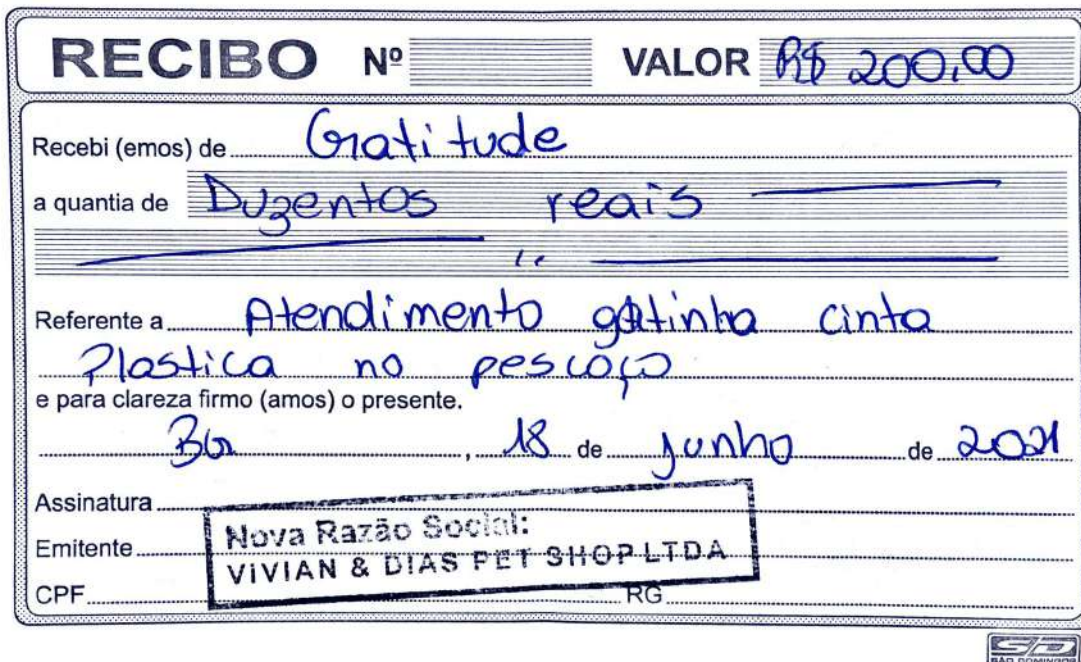 RECIBO Nº VALOR R$ 200,00
Recebi (emos) de Gratitude
a quantia de Duzentos reais
Referente a Atendimento gatinha cinta
Plastica no pescoço
e para clareza firmo (amos) o presente.
BG, 18 de junho de 2021
Assinatura
Nova Razão Social:
Emitente
VIVIAN & DIAS PET SHOP LTDA
CPF RG
SD
SÃO DOMINGOS